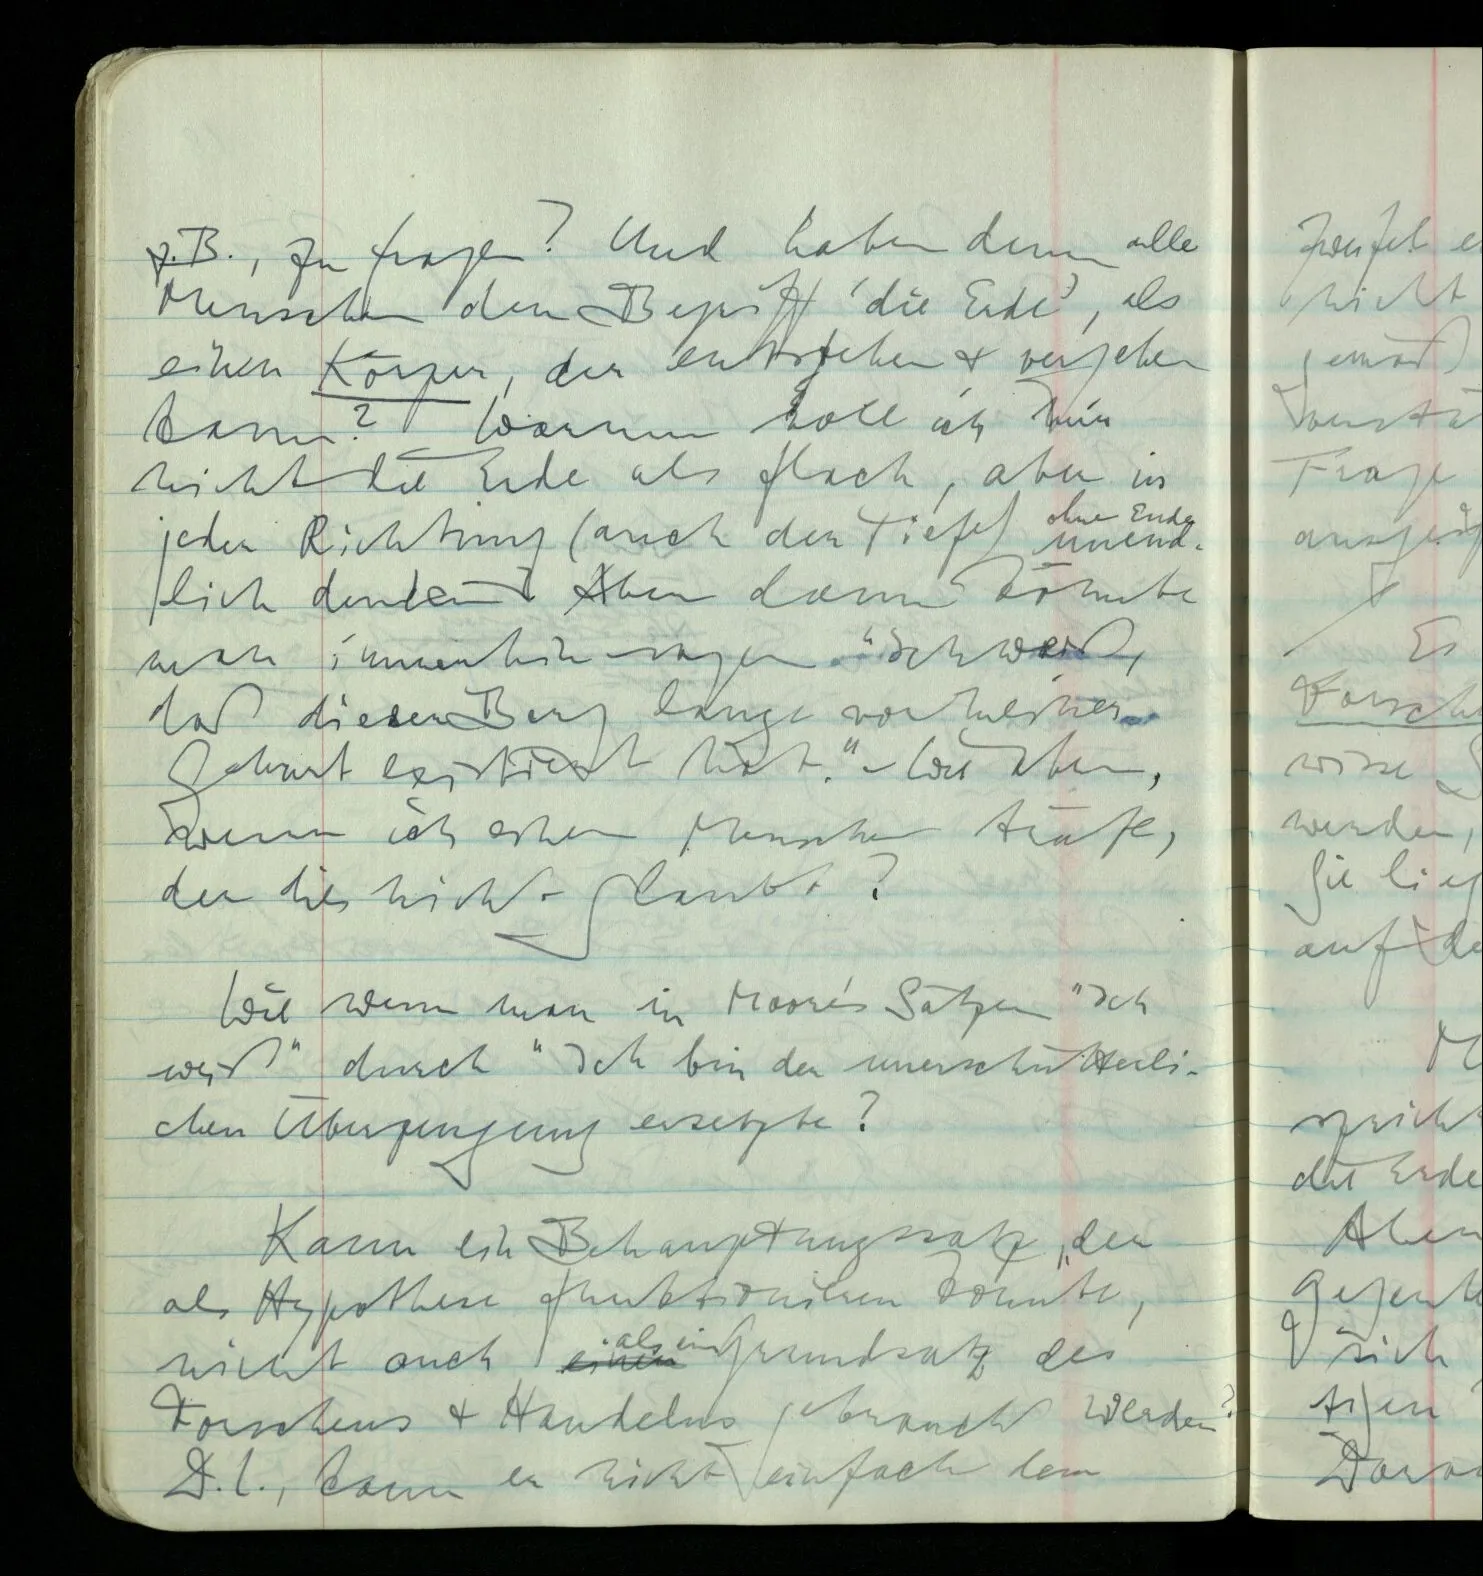 z.B., zu fragen? Und haben denn alle
Menschen den Begriff 'die Erde', als
einen Körper, der entstehen & vergehen
kann? Warum soll ich mir
nicht die Erde als flach, aber in
jeder Richtung (auch der Tiefe) ohne Ende
unend-
lich denken? Aber dann könnte
man immerhin sagen "Ich weiß,
daß dieser Berg lange vor meiner
Geburt existiert hat." – Wie aber,
wenn ich einen Menschen träfe,
der dies nicht glaubt?
Wie wenn man in Moore's Sätzen "Ich
weiß" durch "Ich bin der unerschütterli-
chen Überzeugung" ersetzte?
Kann ein Behauptungssatz, der
als Hypothese funktionieren könnte,
nicht auch einen als ein Grundsatz des
Forschens & Handelns gebraucht werden?
D.i., kann er nicht einfach dem
Zweifel
nicht
gemäß
Frage
Es
Forsch
wisse
werden,
Sie lieg
auf de
M
spricht
die Erde
Aber
sich